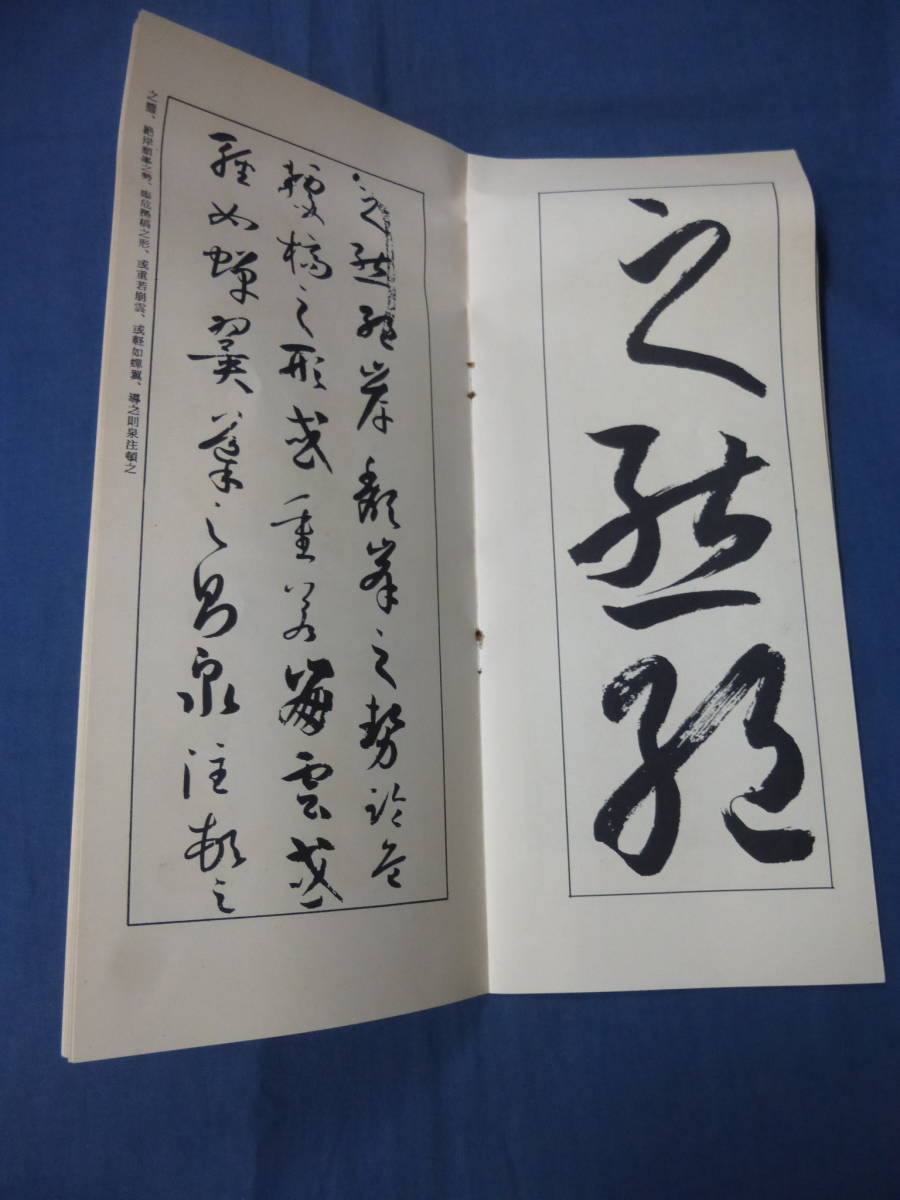 之態絶
之態絶岸頽峯之勢臨危
據槁之形或重若崩雲或
輕如蟬翼導之則泉注頓之
之態、絶岸頽峯之勢、臨危據槁之形、或重若崩雲、或輕如蟬翼、導之則泉注頓之